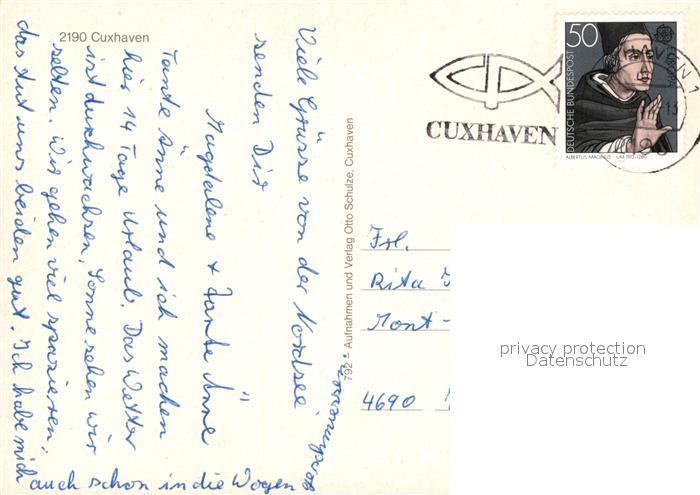 2190 Cuxhaven
Viele Grüsse von der Nordsee
senden Dir
Magdalene + Tante Änne
Tante Änne und ich machen
hier 14 Tage Urlaub. Das Wetter
ist durchwachsen, Sonne sehen wir
selten. Wir gehen viel spazieren,
das tut uns beiden gut. Ich habe mich
auch schon in die Wogen
792 - Aufnahmen und Verlag Otto Schulze, Cuxhaven
CUXHAVEN
50
DEUTSCHE BUNDESPOST
EUROPA
ALBERTUS MAGNUS UM 1193-1280
Frl.
Rita
Mont-
4690
privacy protection
Datenschutz